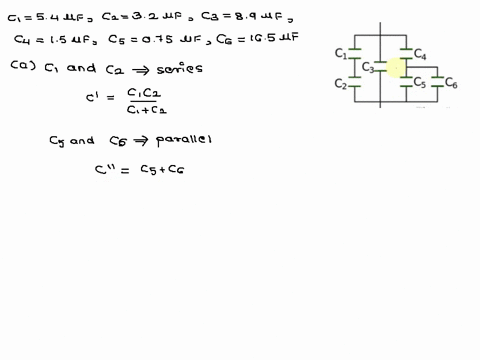 C₁ = 5.4 μF, C₂ = 3.2 μF, C₃ = 8.9 μF,
C₄ = 1.5 μF, C₅ = 0.75 μF, C₆ = 16.5 μF
(a) C₁ and C₂ ⇒ series
C' = C₁C₂ / C₁+C₂
C₅ and C₆ ⇒ parallel
C'' = C₅ + C₆
C₁ C₄
C₃
C₂ C₅ C₆